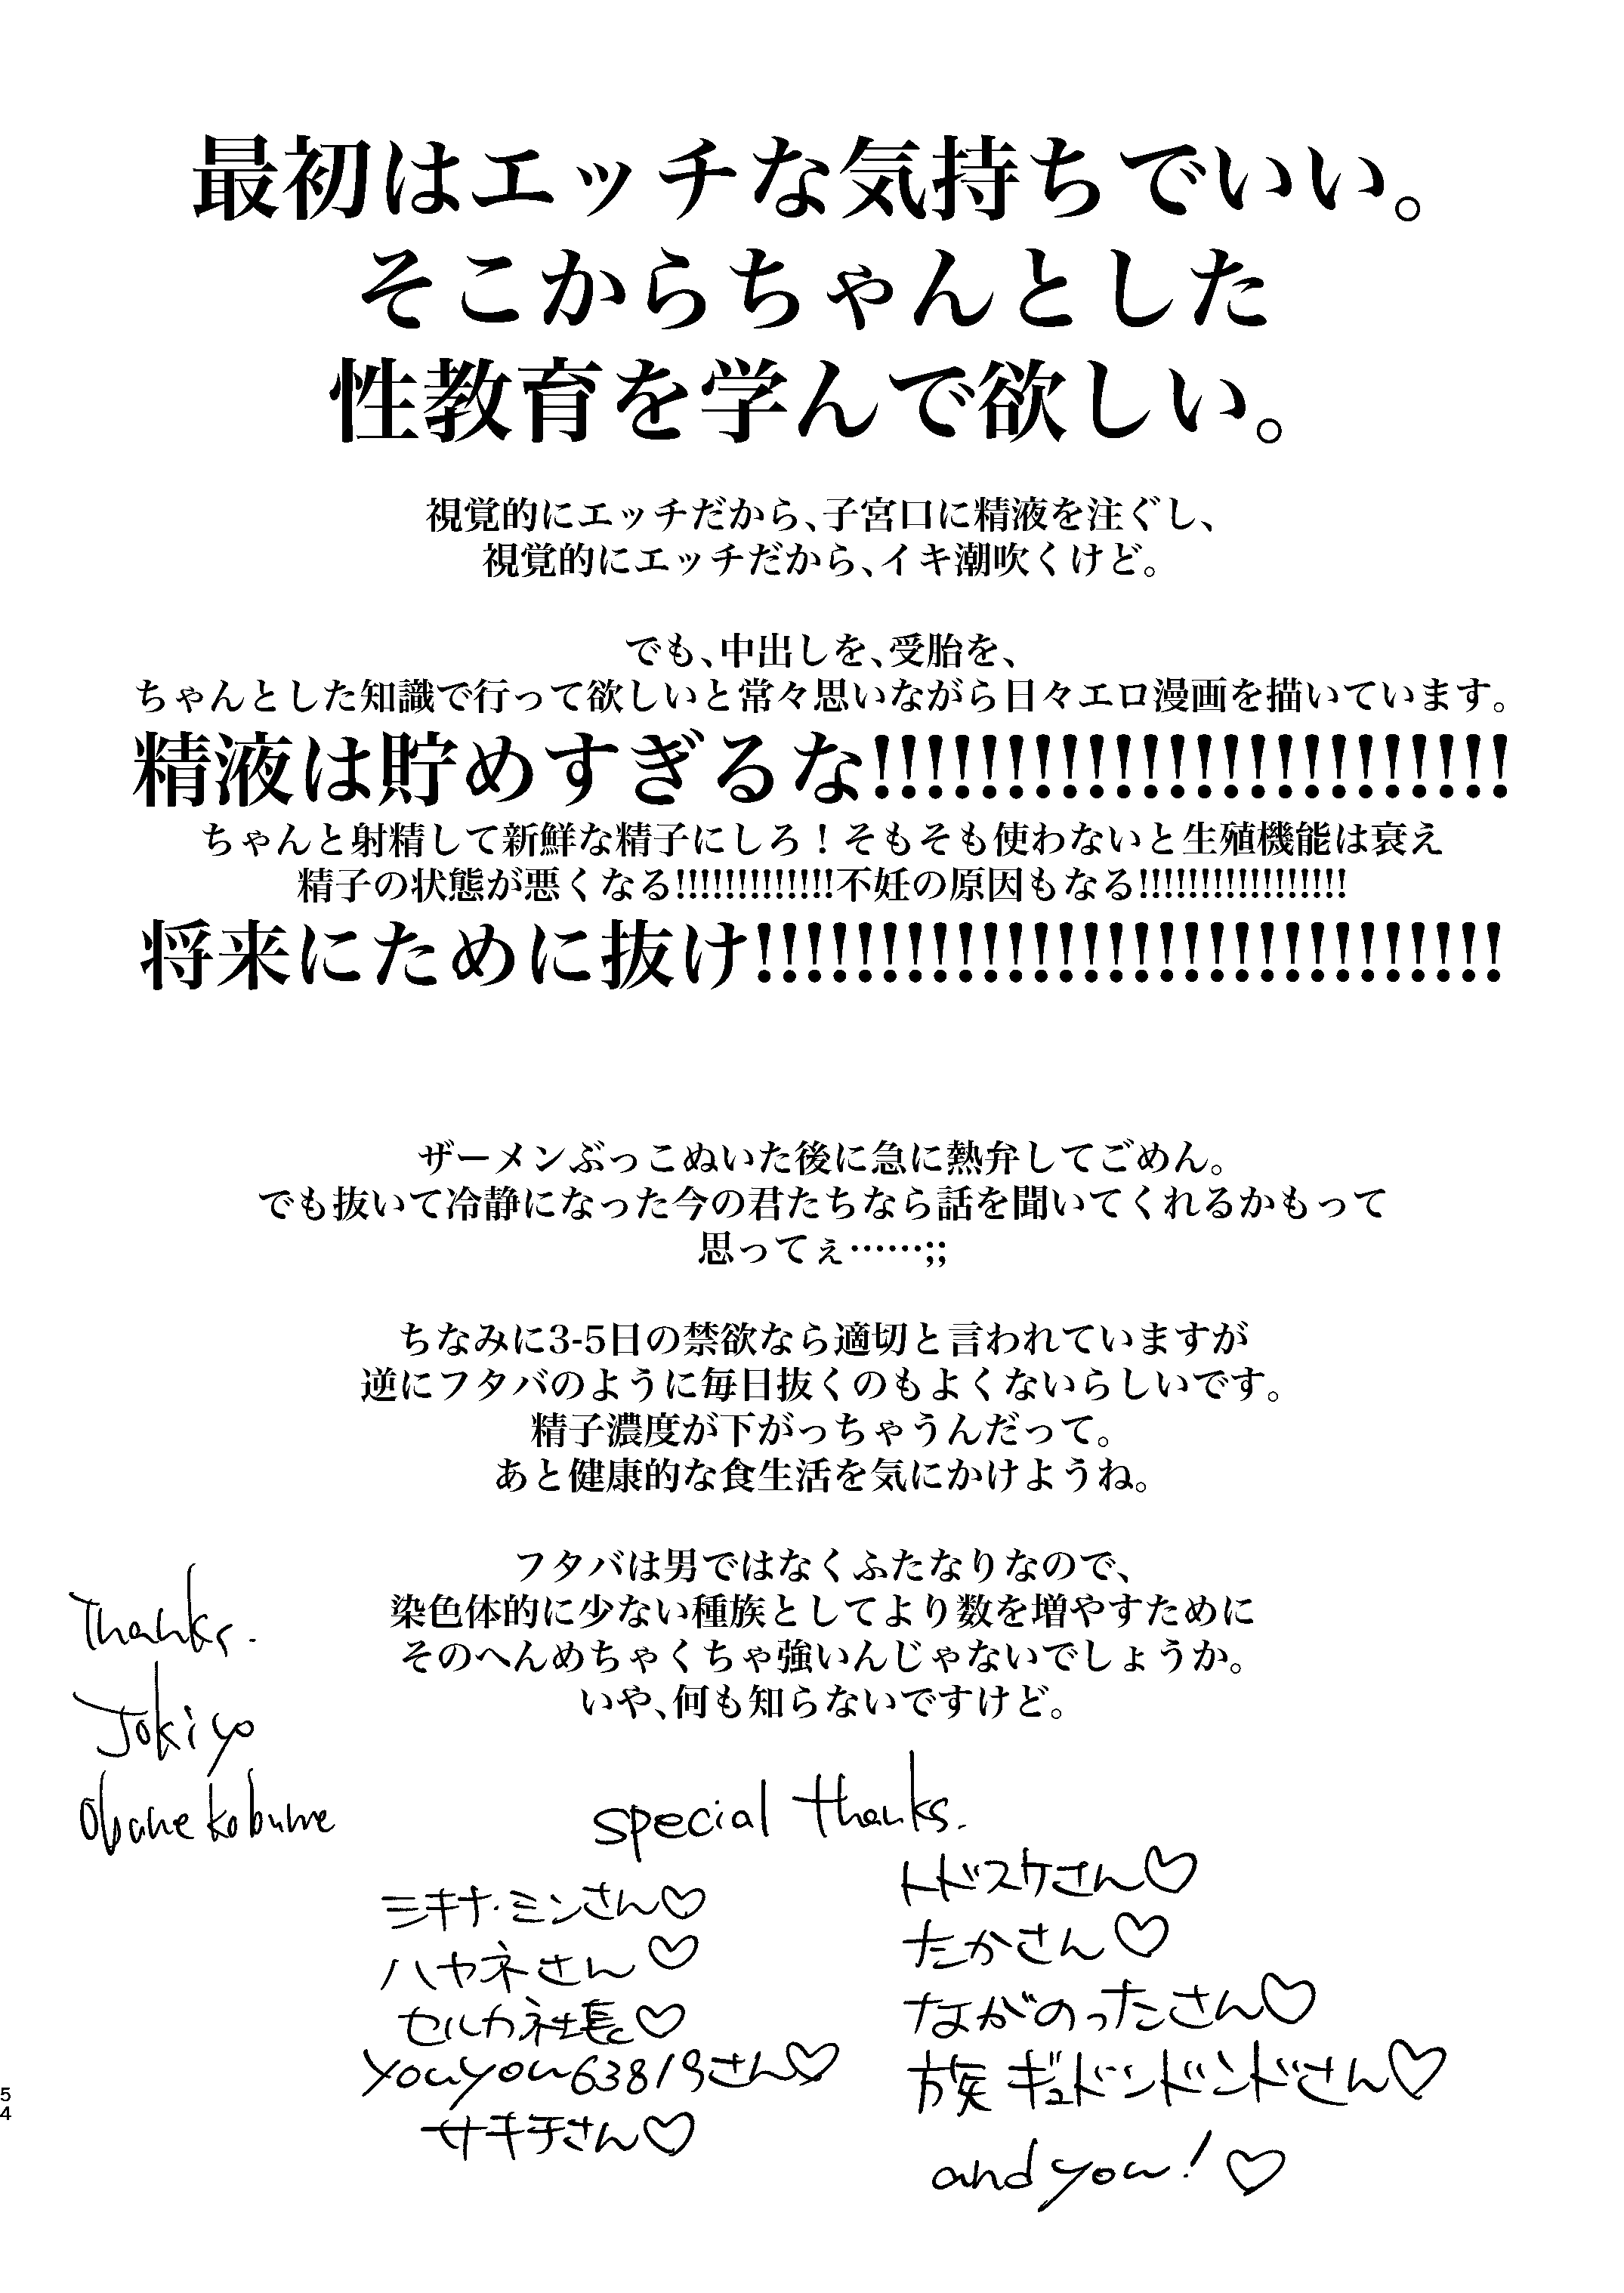 最初はエッチな気持ちでいい。
そこからちゃんとした
性教育を学んで欲しい。
視覚的にエッチだから、子宮口に精液を注ぐし、
視覚的にエッチだから、イキ潮吹くけど。
でも、中出しを、受胎を、
ちゃんとした知識で行って欲しいと常々思いながら日々エロ漫画を描いています。
精液は貯めすぎるな!!!!!!!!!!!!!!!!!!!!!!!!
ちゃんと射精して新鮮な精子にしろ！そもそも使わないと生殖機能は衰え
精子の状態が悪くなる!!!!!!!!!!!!!不妊の原因もなる!!!!!!!!!!!!!!!!!
将来にために抜け!!!!!!!!!!!!!!!!!!!!!!!!!!!!!!
ザーメンぶっこぬいた後に急に熱弁してごめん。
でも抜いて冷静になった今の君たちなら話を聞いてくれるかもって
思ってぇ……;;
ちなみに3-5日の禁欲なら適切と言われていますが
逆にフタバのように毎日抜くのもよくないらしいです。
精子濃度が下がっちゃうんだって。
あと健康的な食生活を気にかけようね。
フタバは男ではなくふたなりなので、
染色体的に少ない種族としてより数を増やすために
そのへんめちゃくちゃ強いんじゃないでしょうか。
いや、何も知らないですけど。
Thanks.
Jokiyo
Obane kobune
special thanks.
シキナ・ミンさん♡
ハヤネさん♡
セルカ社長♡
youyou63819さん♡
サキチさん♡
トドスケさん♡
たかさん♡
ながのったさん♡
族ギュドンドンドさん♡
and you!♡
54